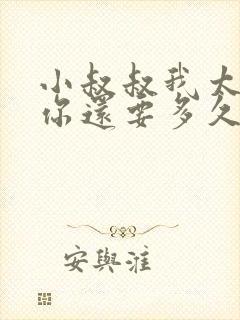 小叔叔我大
你還要多久
安與淮